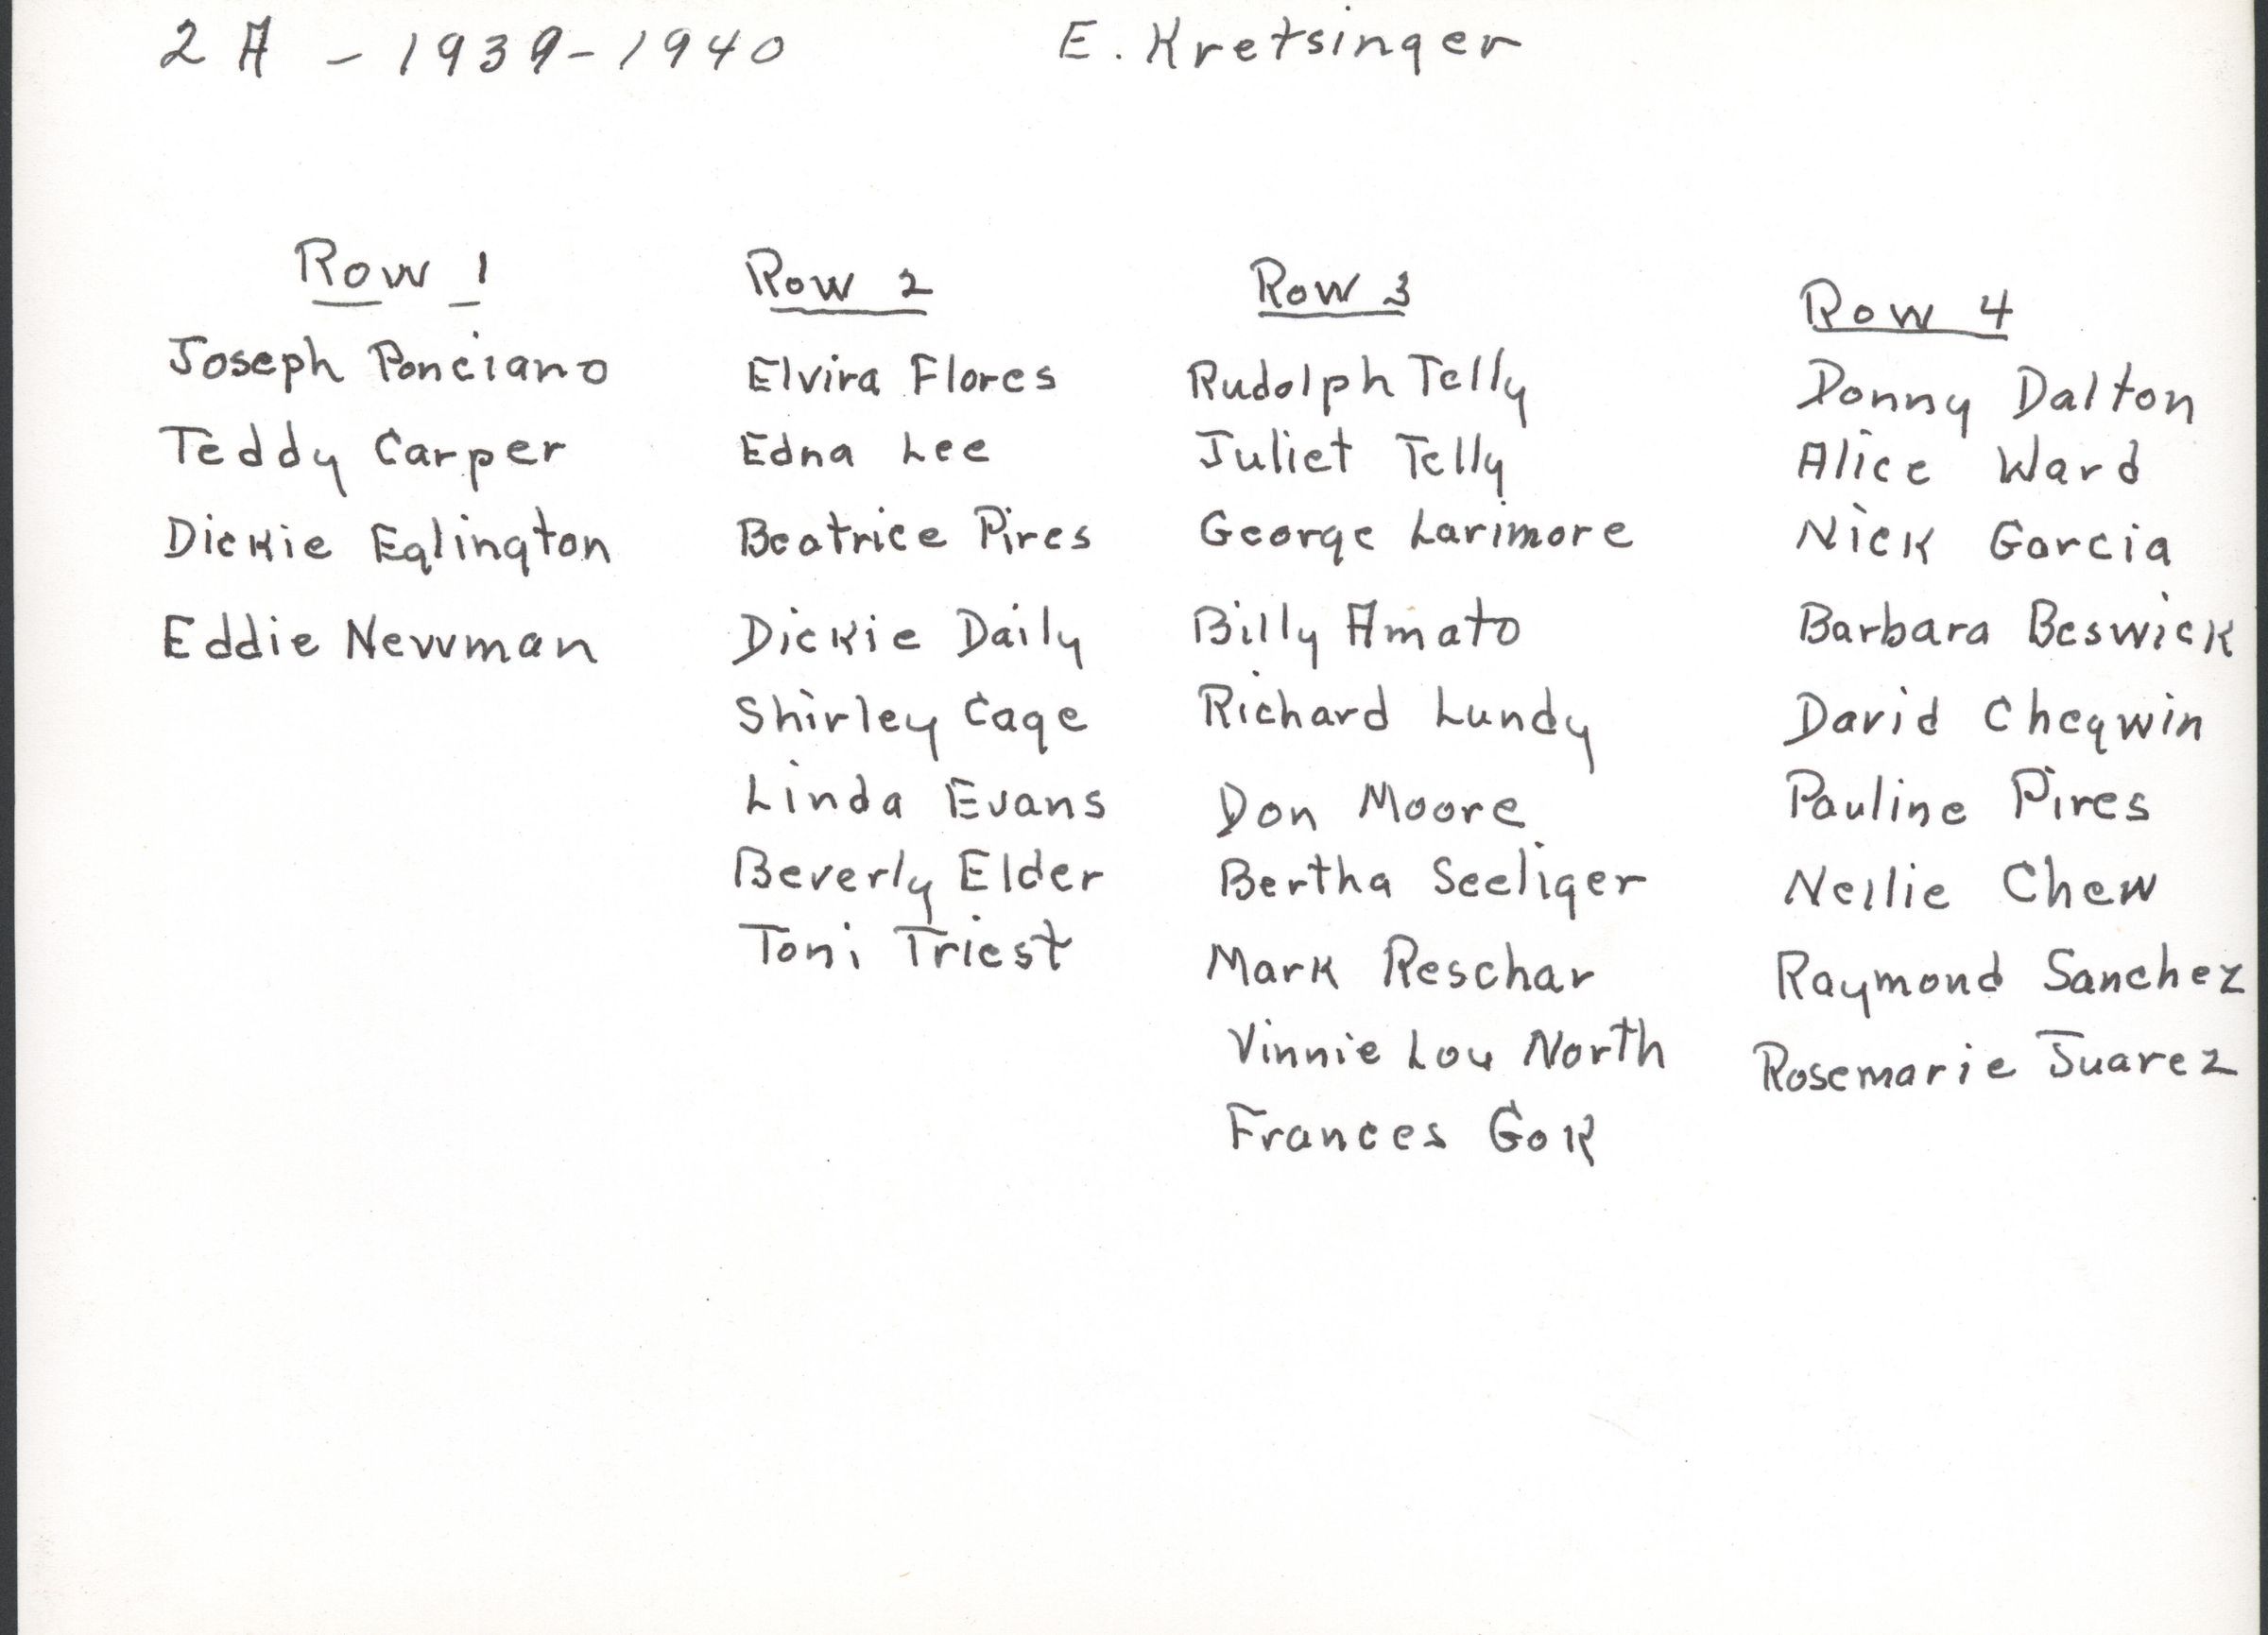 2A - 1939-1940 E. Kretsinger
Row 1
Joseph Ponciano
Teddy Carper
Dickie Eglington
Eddie Newman
Row 2
Elvira Flores
Edna Lee
Beatrice Pires
Dickie Daily
Shirley Cage
Linda Evans
Beverly Elder
Toni Triest
Row 3
Rudolph Telly
Juliet Telly
George Larimore
Billy Amato
Richard Lundy
Don Moore
Bertha Seeliger
Mark Reschar
Vinnie Lou North
Frances Gok
Row 4
Donny Dalton
Alice Ward
Nick Garcia
Barbara Beswick
David Chegwin
Pauline Pires
Nellie Chew
Raymond Sanchez
Rosemarie Suarez